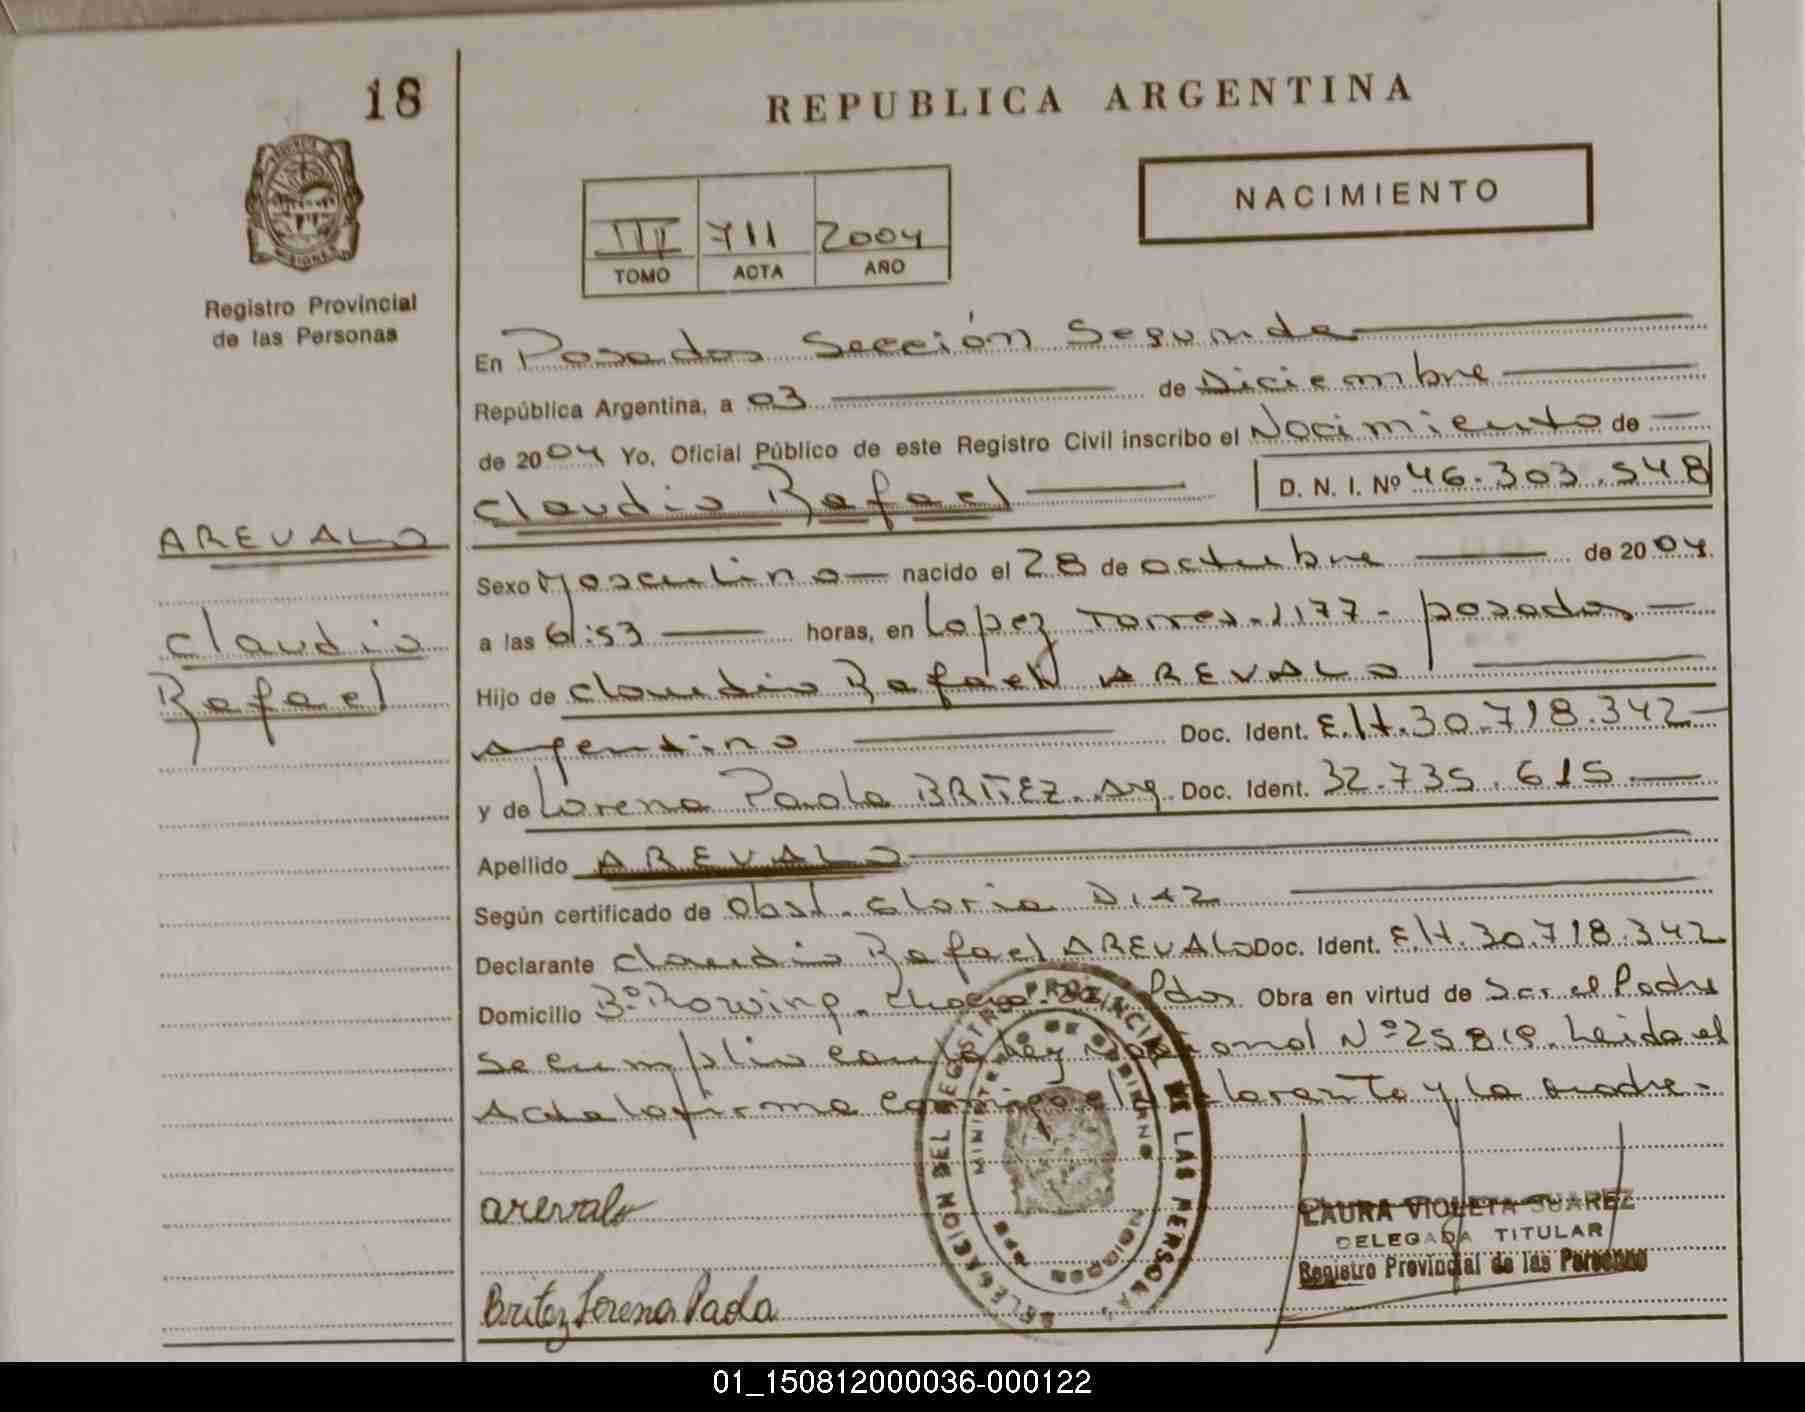 18
REPUBLICA ARGENTINA
NACIMIENTO
III 711 2004
TOMO ACTA AÑO
Registro Provincial
de las Personas
En Posadas Sección Segunda
República Argentina, a 03 de Diciembre
de 2004 Yo, Oficial Público de este Registro Civil inscribo el Nacimiento de
Claudio Rafael D. N. I. Nº 46.303.548
AREVALO
Claudio
Rafael
Sexo Masculino nacido el 28 de octubre de 2004
a las 6:53 horas, en Lopez Torres 1177 - posadas
Hijo de Claudio Rafael AREVALO
Argentino Doc. Ident. 30.718.342
y de Lorena Paola BRITEZ. Arg. Doc. Ident. 32.735.615
Apellido AREVALO
Según certificado de Obst. Gloria DIAZ
Declarante Claudio Rafael AREVALO Doc. Ident. 30.718.342
Domicilio Bº Rowing. Pdas Obra en virtud de Ser el Padre
Se cumplio con la Ley Nacional Nº 25819. Leida el
Acta la firma conmigo el declarante y la madre.-
DELEGACION DEL REGISTRO PROVINCIAL DE LAS PERSONAS
MINISTERIO DE GOBIERNO
MISIONES
arevalo
Britez Lorena Paola
LAURA VIOLETA SUAREZ
DELEGADA TITULAR
Registro Provincial de las Personas
01_150812000036-000122